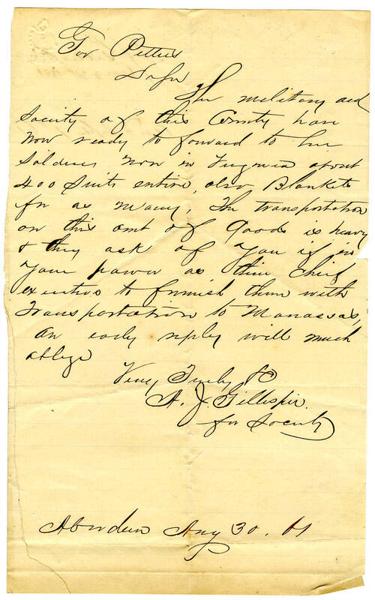 Gov Pettus
Dr Sir
The military aid
Society of this County have
now ready to forward to her
Soldiers now in Virginia about
400 Suits entire, also Blankets
for as many. The transportation
on this amt of Goods is heavy
& they ask of you if in
your power as their Chief
executive to furnish them with
Transportation to Manassas,
An early reply will much
oblige
Very Truly &c
A. J. Gillespie
for Society
Aberdeen Aug 30. 61